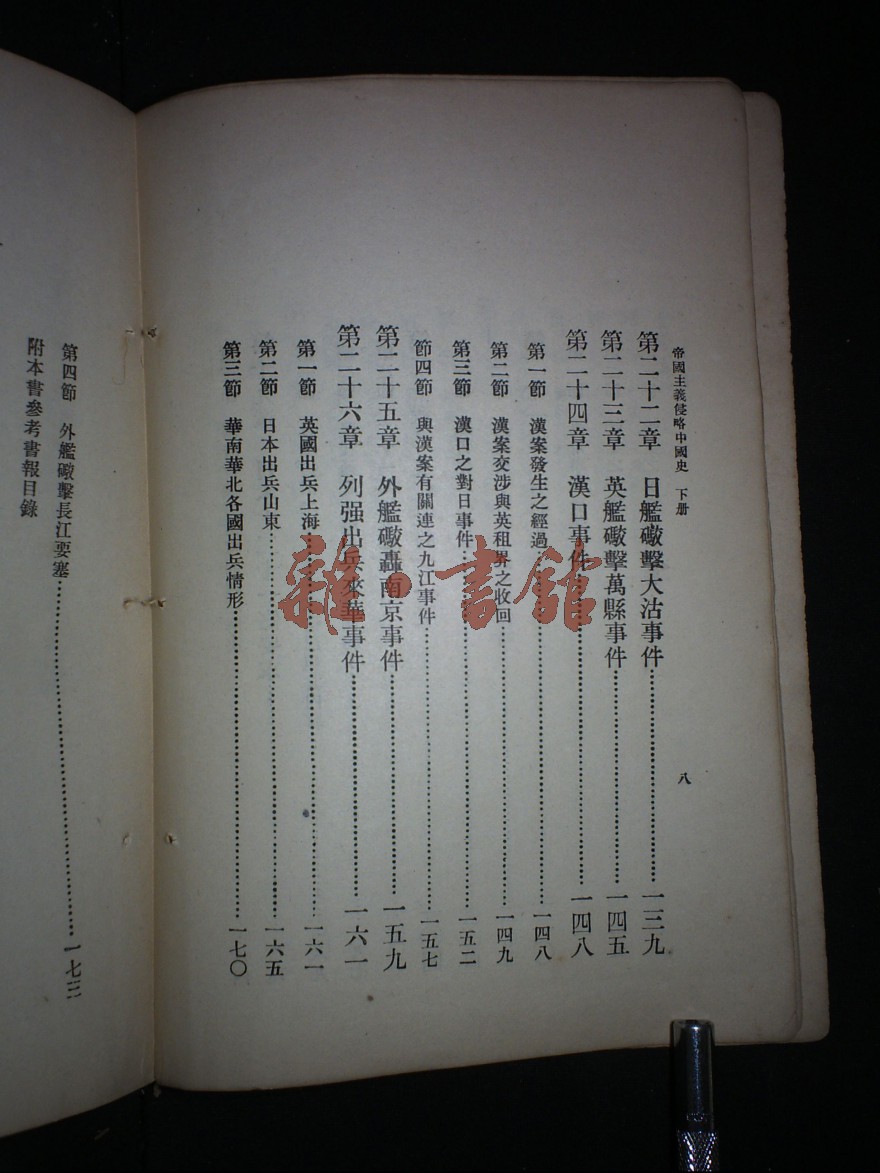 帝國主義侵略中國史　下册
八
第二十二章　日艦礮擊大沽事件……一三九
第二十三章　英艦礮擊萬縣事件……一四五
第二十四章　漢口事件……一四八
第一節　漢案發生之經過……一四八
第二節　漢案交涉與英租界之收回……一四九
第三節　漢口之對日事件……一五二
節四節　與漢案有關連之九江事件……一五七
第二十五章　外艦礮轟南京事件……一五九
第二十六章　列强出兵來華事件……一六一
第一節　英國出兵上海……一六一
第二節　日本出兵山東……一六五
第三節　華南華北各國出兵情形……一七〇
第四節　外艦礮擊長江要塞……一七三
附本書參考書報目錄
雜·書館